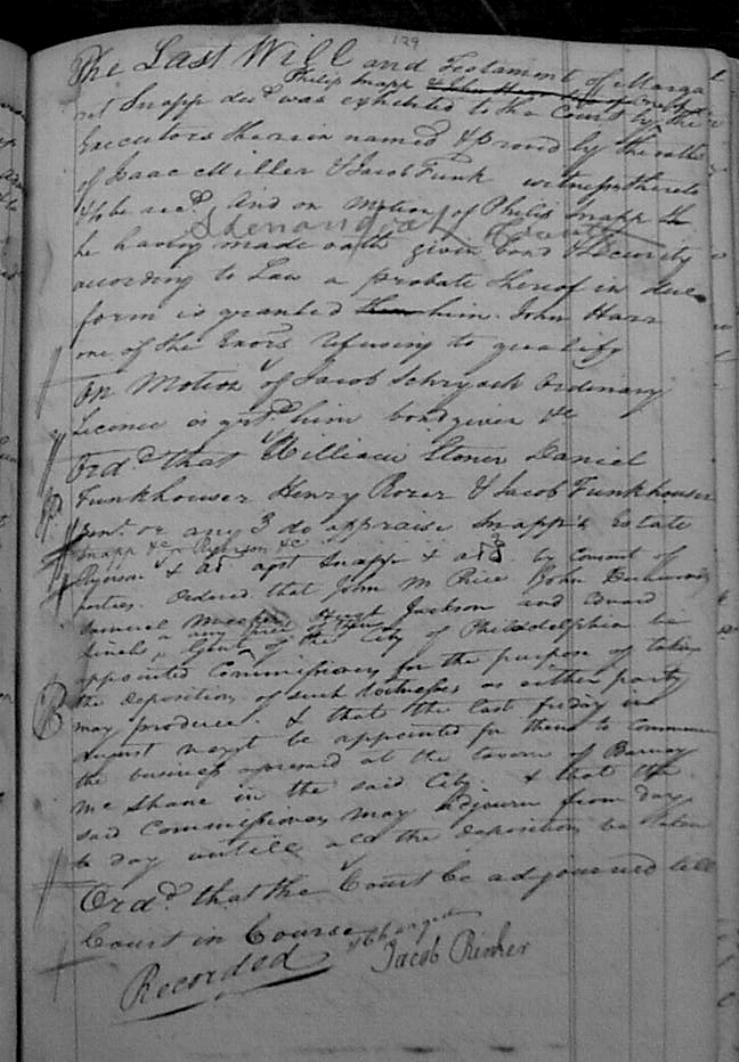 129
The Last Will and Testament of Marga
Philip Snapp
ret Snapp decd was exhibited to the Court by the
Executors therein named & proved by the oaths
of Isaac Miller & Jacob Funk witnesses thereto
& to be recd. And on Motion of Philip Snapp
Shenandoah County
he having made oath given bond & Security
according to Law a probate thereof in due
form is granted him. John Harr
one of the Exors refusing to qualify
On Motion of Jacob Schryack Ordinary
Licence is grtd him bond given &c
Ordd that William Stoner Daniel
Funkhouser Henry Rozer & Jacob Funkhouser
Gent. or any 3 do appraise Snapp's Estate
Snapp &c &c
agst Snapp & by Consent of
parties. Ordered that John M Price John
Samuel Jackson and Edward
or any three of them
Gent. of the City of Philadelphia be
appointed Commissioners for the purpose of taking
the deposition of such witnesses as either party
may produce. & that the last friday in
August next be appointed for them to Commence
the business at the tavern of Barnay
McShane in the said City. & that the
said Commissioners may adjourn from day
to day untill all the depositions be taken
Ordd that the Court be adjourned till
Court in Course
& Charged
Recorded Jacob Rinker